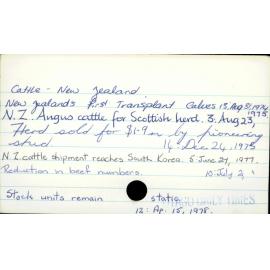 Cattle - New Zealand.
New Zealand's first Transplant Calves 15, Aug 31, 1974
N.Z. Angus cattle for Scottish herd. 3, Aug 23, 1975.
Herd sold for $1.9m by pioneering
stud 14 Dec 24, 1975
N.Z. cattle shipment reaches South Korea. 5 June 27, 1977.
Reduction in beef numbers. 10 July 2,
Stock units remain static
12: Ap. 15, 1978.
OTAGO DAILY TIMES